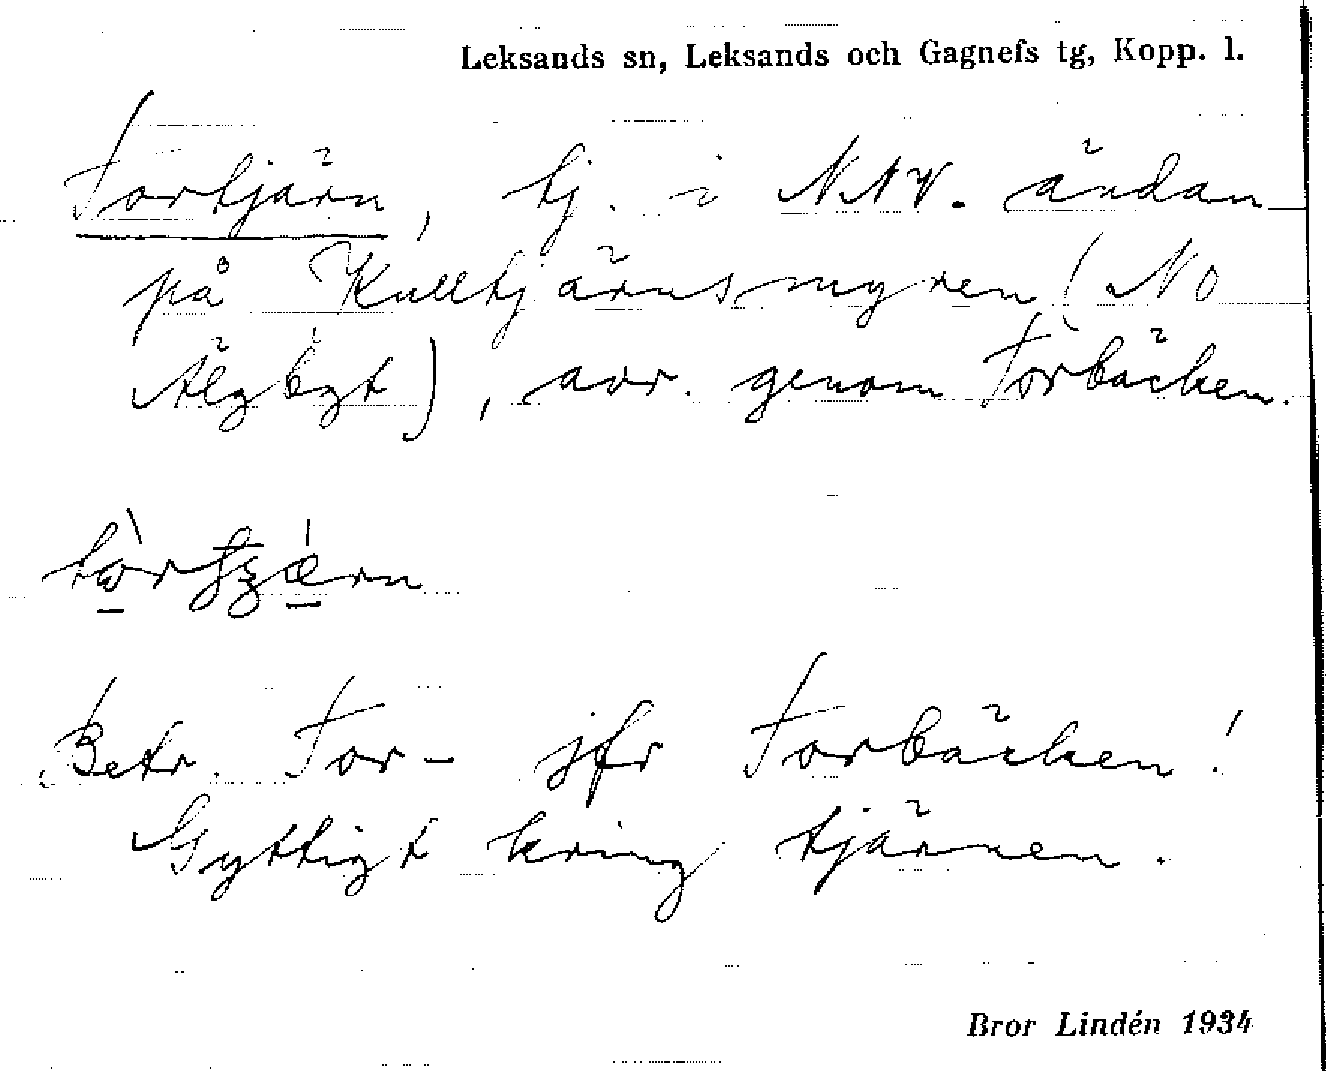 Leksands sn, Leksands och Gagnefs tg, Kopp. l.
Tortjärn, tj. i NNV. ändan
på Kulltjärnsmyren (NO
Älgbyt), avr. genom Torbäcken.
Betr. Tor- jfr Torbäcken!
Gyttigt kring tjärnen.
Bror Lindén 1934